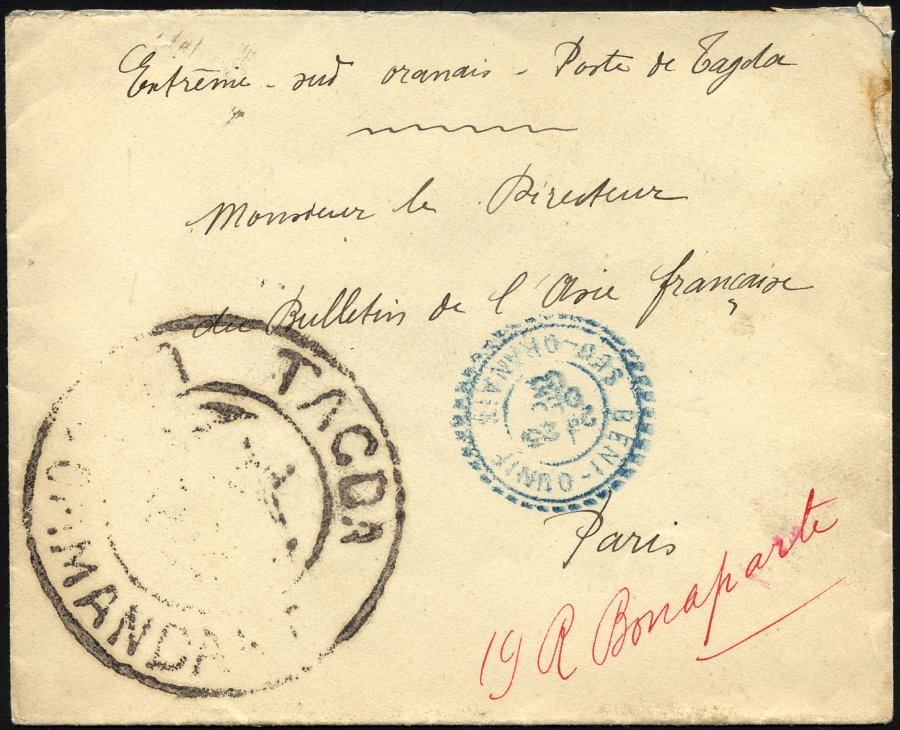 Extrême-sud oranais - Poste de Tagda
Monsieur le Directeur
du Bulletin de l'Asie française
Paris
19 R Bonaparte
TAGDA
BENI-OUNIF
SUD-ORANAIS